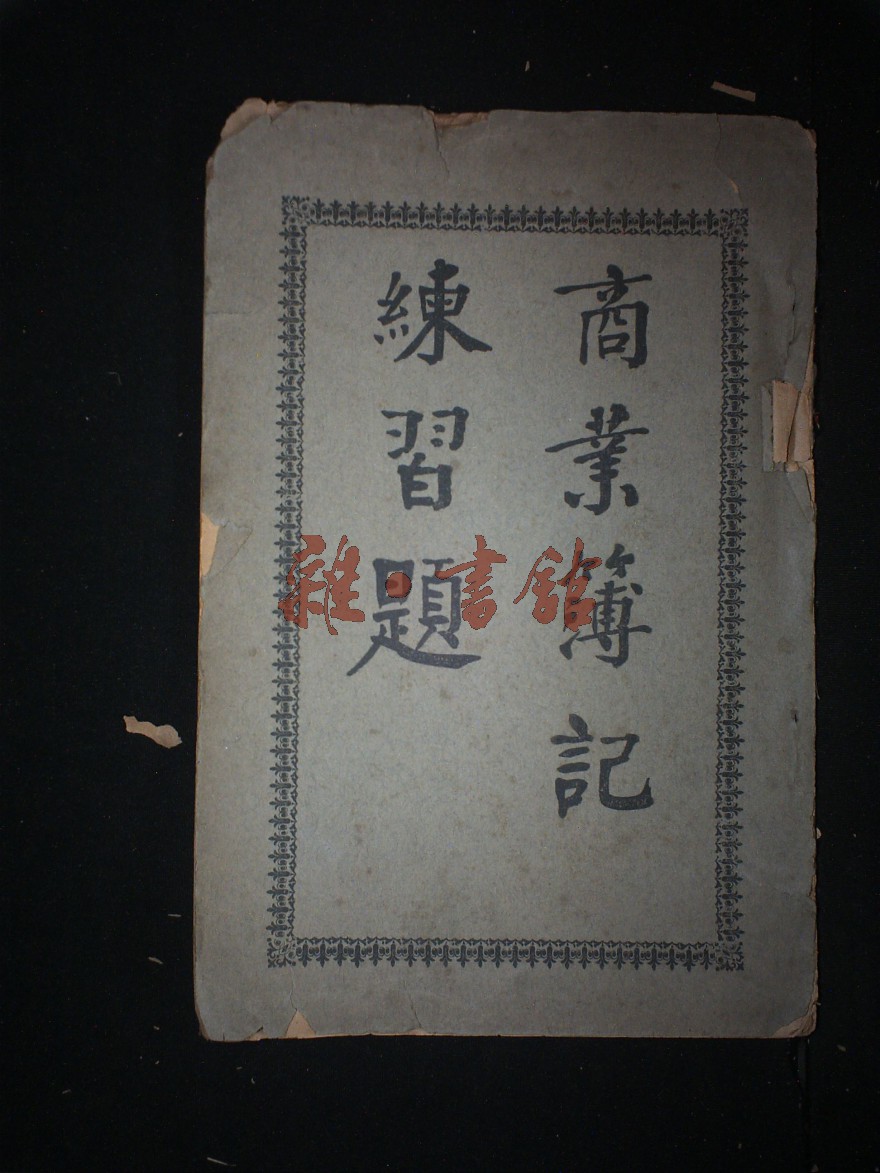 商業簿記
練習題
雜·書館